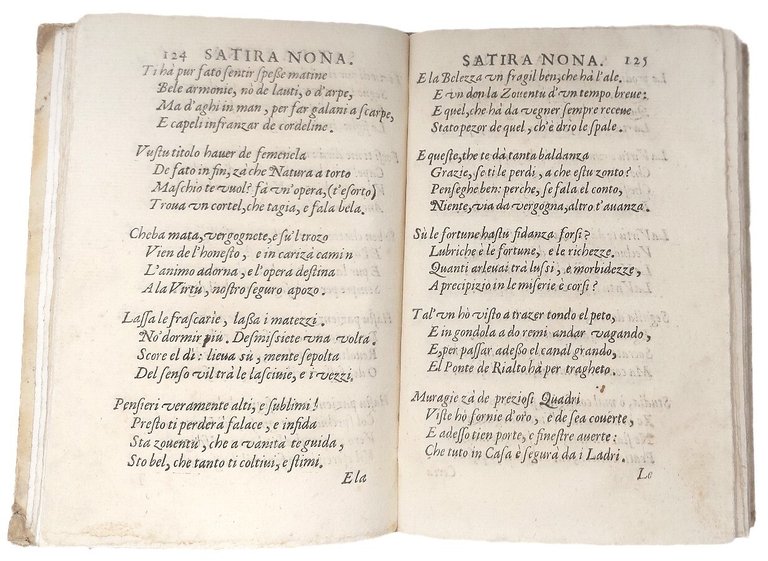 124 SATIRA NONA.
Ti hà pur fato sentir speße matine
Bele armonie, nò de lauti, o d'arpe,
Ma d'aghi in man, per far galani a scarpe,
E capeli infranzar de cordeline.
Vustu titolo hauer de femenela
De fato in fin, zà che Natura a torto
Maschio te vuol? fà vn'opera, (t'esorto)
Troua vn cortel, che tagia, e fala bela.
Cheba mata, vergognete, e sù'l trozo
Vien de l'honesto, e in cariza camin
L'animo adorna, e l'opera destina
A la Virtù, nostro seguro apozo.
Lassa le frascarie, laßa i matezzi.
No' dormir più. Desmissiete vna volta.
Score el dì: lieua sù, mente sepolta
Del senso vil trà le lasciuie, e i vezzi.
Pensieri veramente alti, e sublimi!
Presto ti perderà falace, e infida
Sta zouentù, che a vanità te guida,
Sto bel, che tanto ti coltiui, e stimi.
E la
SATIRA NONA. 125
E la Belezza vn fragil ben, che hà l'ale.
E vn don la Zouentu d'vn tempo breue:
E quel, che hà da vegner sempre receue
Stato pezor de quel, ch'è drio le spale.
E queste, che te dà tanta baldanza
Grazie, se ti le perdi, a che estu zonto?
Penseghe ben: perche, se fala el conto,
Niente, via da vergogna, altro t'auanza.
Sù le fortune hastu fidanza forsi?
Lubriche è le fortune, e le richezze.
Quanti arleuai trà lussi, e morbidezze,
A precipizio in le miserie è corsi?
Tal'vn hò visto a trazer tondo el peto,
E in gondola a do remi andar vagando,
E, per passar adeßo el canal grando,
El Ponte de Rialto hà per tragheto.
Muragie zà de preziosi Quadri
Viste hò fornie d'oro, e de sea couerte,
E adesso tien porte, e finestre auerte:
Che tuto in Casa è segurà da i Ladri.
Le